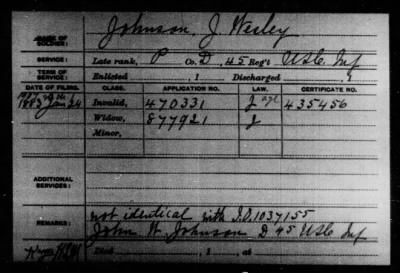 NAME OF SOLDIER: Johnson, J. Wesley
SERVICE: Late rank, P Co. D, 45 Reg't U.S.C. Inf
TERM OF SERVICE: Enlisted , 1 Discharged , 1
DATE OF FILING. CLASS. APPLICATION NO. LAW. CERTIFICATE NO.
1883 Jan 24 Invalid, 470331 J 435456
Widow, 877921 J
Minor,
ADDITIONAL SERVICES:
REMARKS: not identical with I.O. 1037155
John W. Johnson D 45 USC Inf
Died , 1 , at